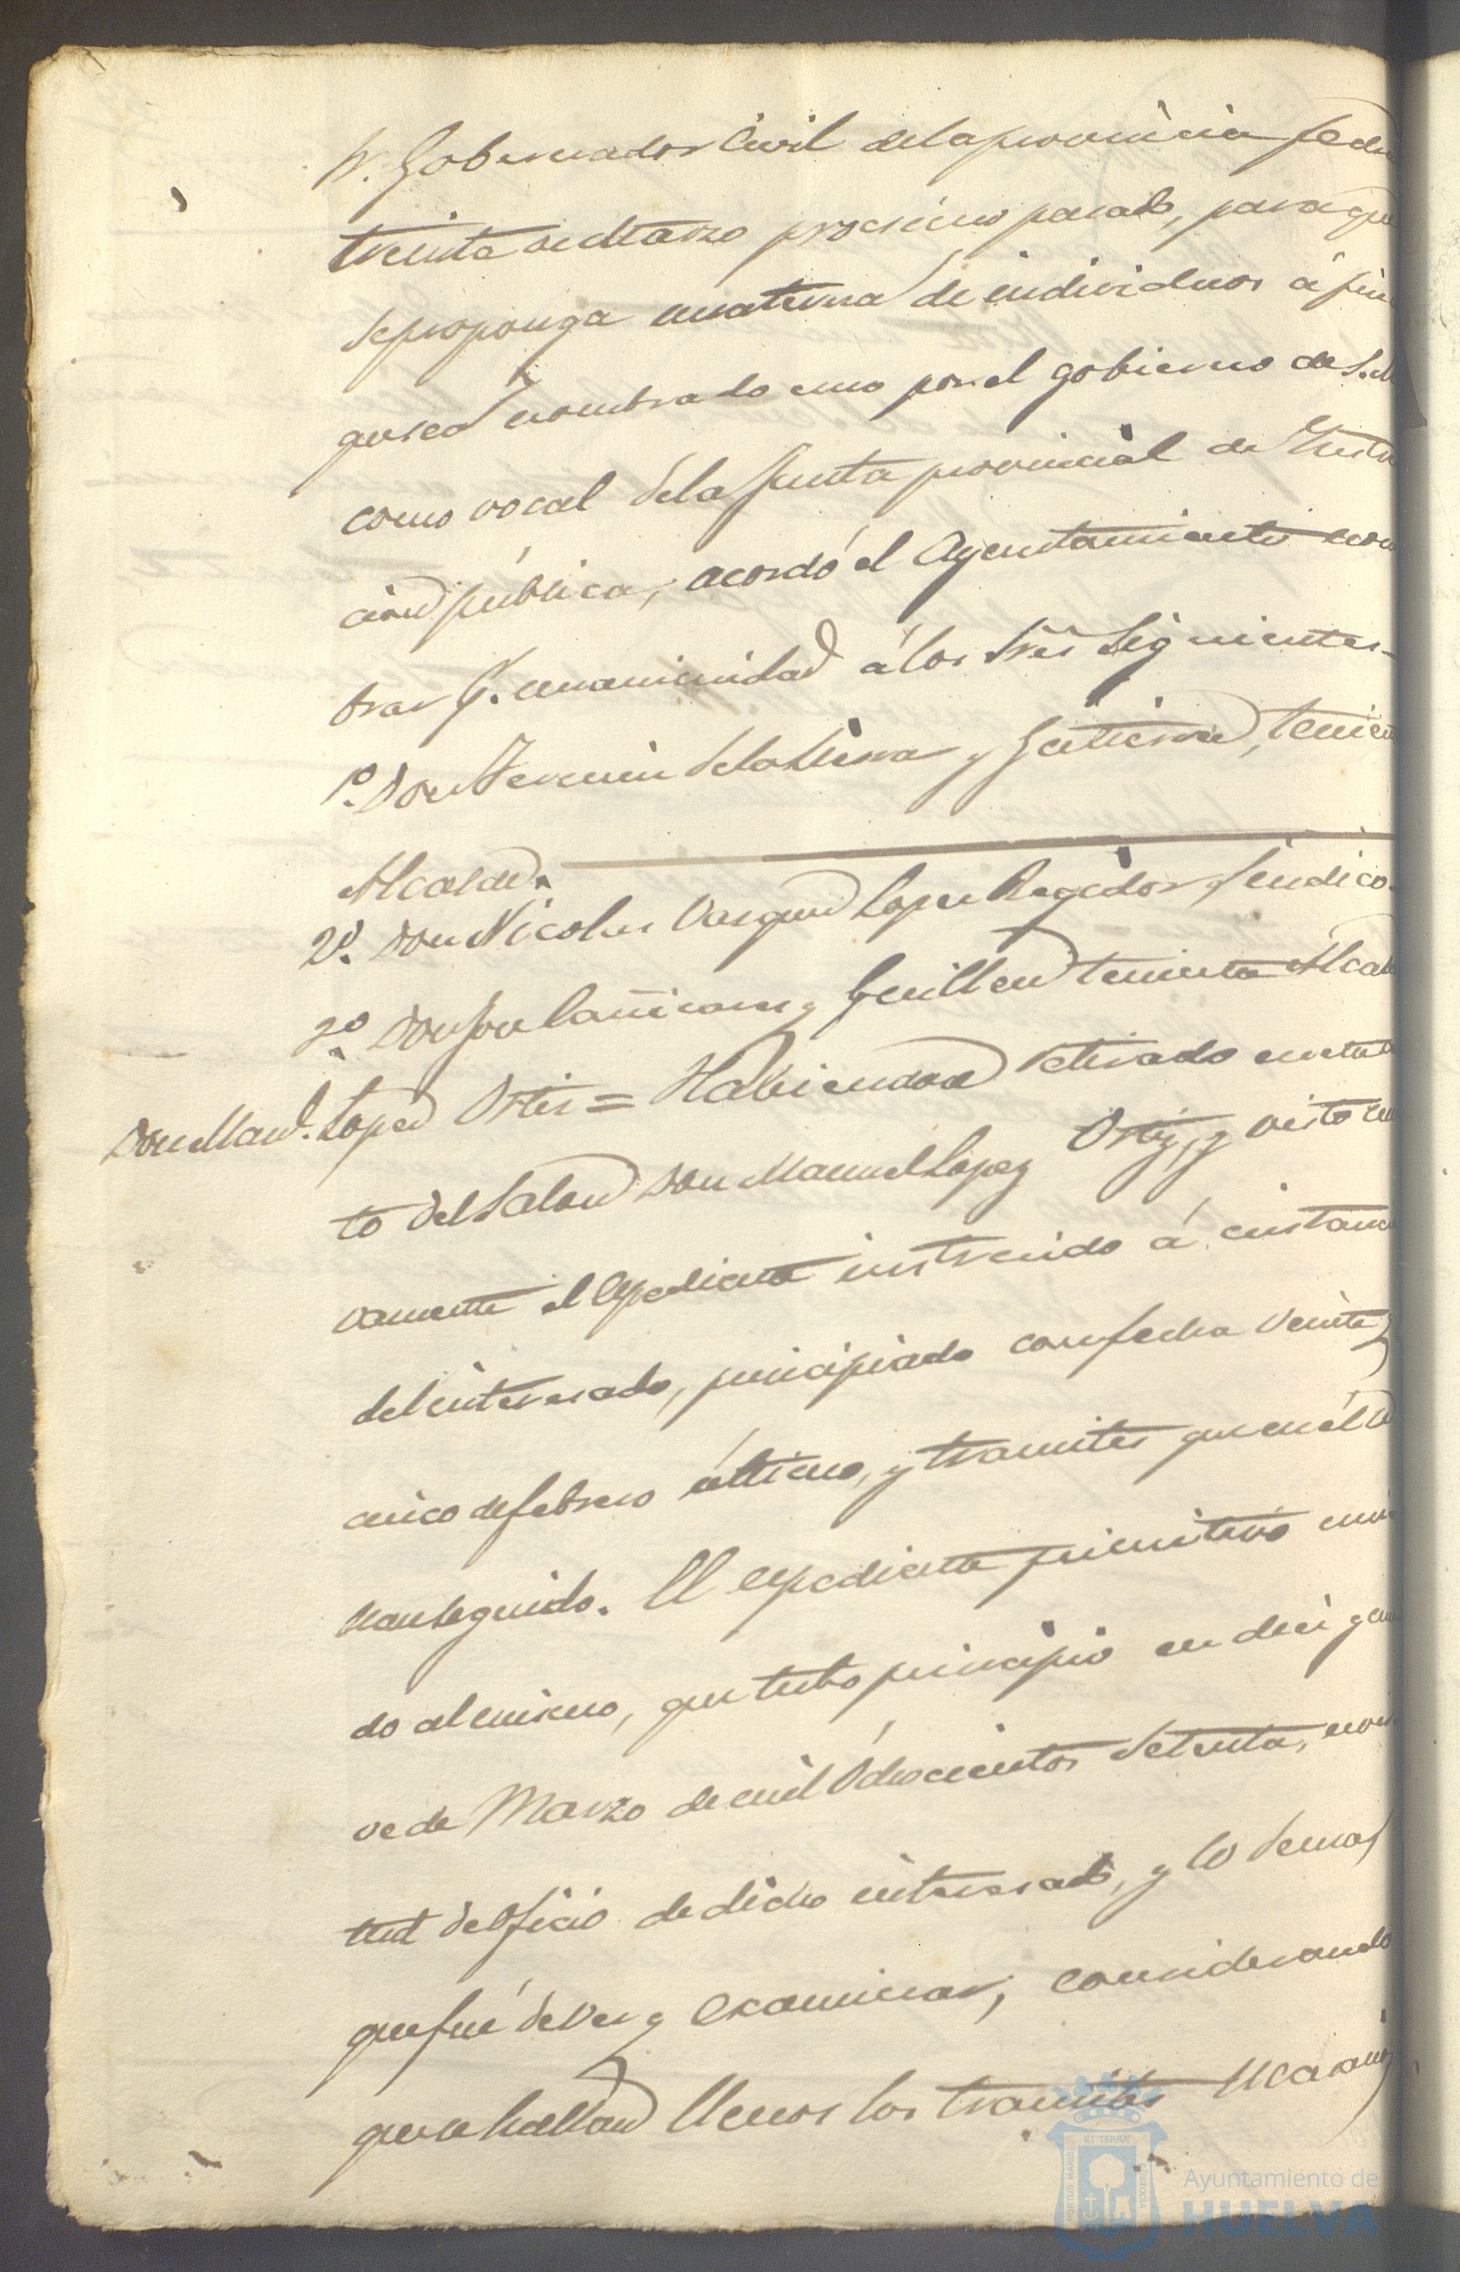 Sr. Gobernador Civil de la provincia fecha
treinta de Marzo procsimo pasado, para que
se proponga una terna de individuos á fin
que sea nombrado uno por el gobierno de S. M
como vocal de la Junta provincial de Instru
cion pública, acordó el Ayuntamiento nom
brar p.r unanimidad á los Sres siguientes
1º. Don Fermin de la Sierra y Gutierrez, tenien
Alcalde.
2º. Don Nicolas Vazquez Lopez Regidor Sindico
3º. Don José Cañizares y Guillen teniente Alcal
Don Man.l Lopez Ortiz = Habiendose retirado en este
to del Salon Don Manuel Lopez Ortiz, y visto nue
vamente el Espediente instruido á instanc
del interesado, principiado con fecha veinte y
cinco de febrero último, y tramites que en él
han seguido. El espediente primitivo uni
do al mismo, que tubo principio en diez y nue
ve de Marzo de mil ochocientos setenta,
de oficio de dicho interesado, y lo demas
que fué de ver y examinar, considerando
que se hallan llenos los tramites
Ayuntamiento de
HUELVA
PORTUS MARIS
ET TERRAE
CUSTODIA